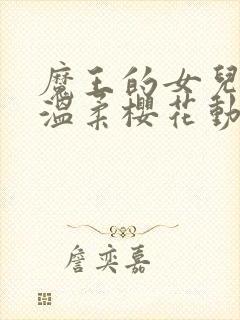 魔王的女兒
溫柔櫻花動
詹奕嘉